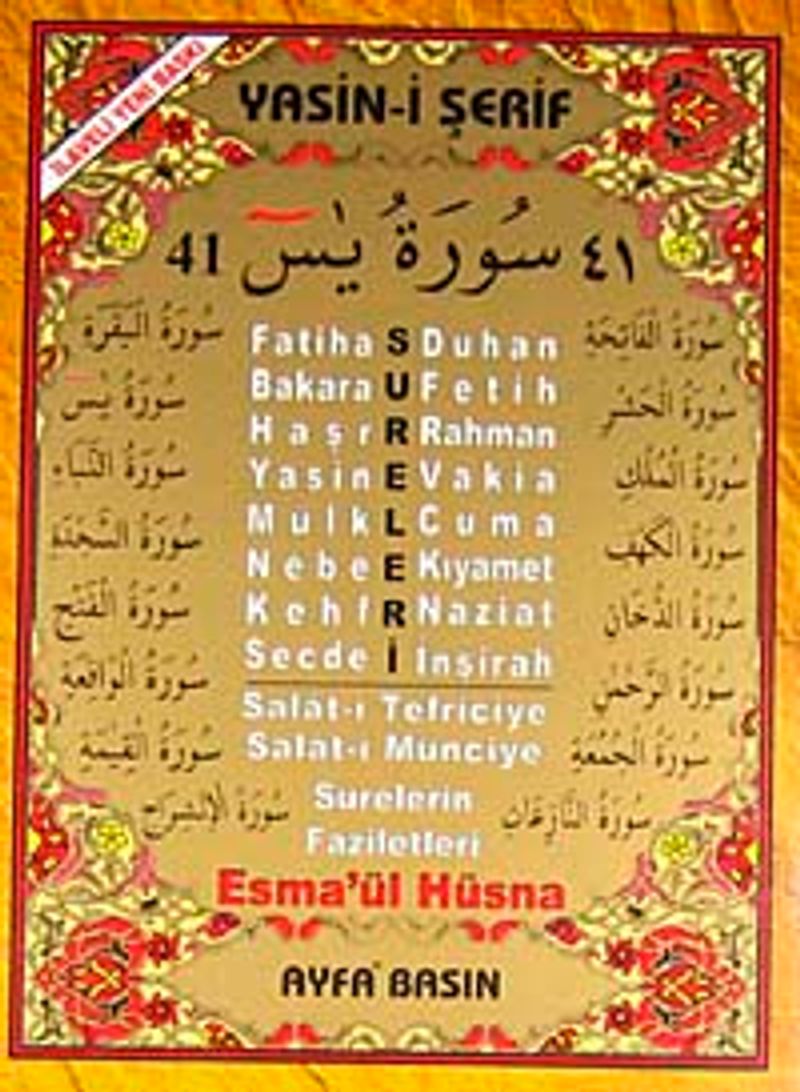 İLAVELİ YENİ BASKI
YASİN-İ ŞERİF
41 سُورَةُ يٰسٓ ٤١
Fatiha S Duhan
Bakara U Fetih
Haşr R Rahman
Yasin E Vakia
Mülk L Cuma
Nebe E Kıyamet
Kehf R Naziat
Secde İ İnşirah
Salât-ı Tefriciye
Salât-ı Münciye
Surelerin
Faziletleri
Esma'ül Hüsna
AYFA BASIN
سُورَةُ الْفَاتِحَةِ
سُورَةُ الْحَشْرِ
سُورَةُ الْمُلْكِ
سُورَةُ الْكَهْفِ
سُورَةُ الدُّخَانِ
سُورَةُ الرَّحْمٰنِ
سُورَةُ الْجُمُعَةِ
سُورَةُ النَّازِعَاتِ
سُورَةُ الْبَقَرَةِ
سُورَةُ يٰسٓ
سُورَةُ النَّبَاءِ
سُورَةُ السَّجْدَةِ
سُورَةُ الْفَتْحِ
سُورَةُ الْوَاقِعَةِ
سُورَةُ الْقِيٰمَةِ
سُورَةُ الْاِنْشِرَاحِ